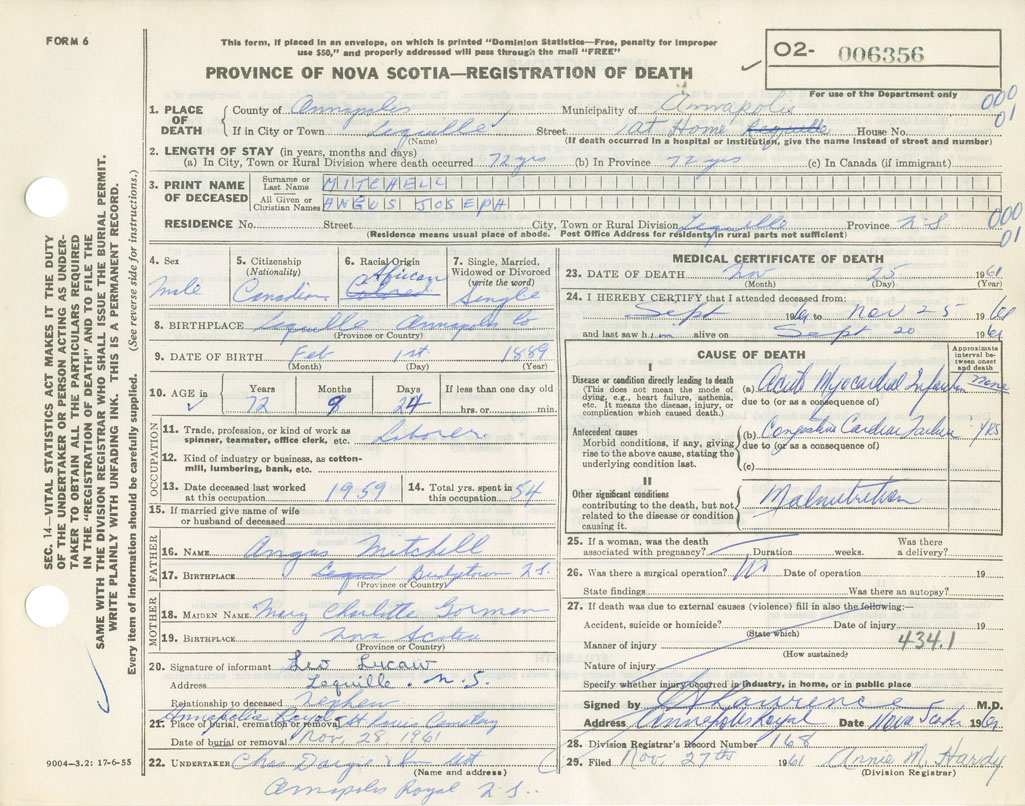 FORM 6
This form, if placed in an envelope, on which is printed "Dominion Statistics—Free, penalty for improper
use $50," and properly addressed will pass through the mail "FREE"
PROVINCE OF NOVA SCOTIA—REGISTRATION OF DEATH
O2- 006356
For use of the Department only
000
01
1. PLACE OF DEATH
County of Annapolis Municipality of Annapolis
If in City or Town Lequille Street At Home Lequille House No.
(Name) (If death occurred in a hospital or institution, give the name instead of street and number)
2. LENGTH OF STAY (in years, months and days)
(a) In City, Town or Rural Division where death occurred 72 yrs (b) In Province 72 yrs (c) In Canada (if immigrant)
3. PRINT NAME OF DECEASED
Surname or Last Name MITCHELL
All Given or Christian Names ANGUS JOSEPH
RESIDENCE No. Street City, Town or Rural Division Lequille Province N S
(Residence means usual place of abode. Post Office Address for residents in rural parts not sufficient)
000
01
4. Sex
Male
5. Citizenship (Nationality)
Canadian
6. Racial Origin
African
Colored
7. Single, Married, Widowed or Divorced (write the word)
Single
8. BIRTHPLACE Lequille Annapolis Co
(Province or Country)
9. DATE OF BIRTH Feb 1st 1889
(Month) (Day) (Year)
10. AGE in
Years Months Days If less than one day old
72 9 24 hrs. or min.
OCCUPATION
11. Trade, profession, or kind of work as
spinner, teamster, office clerk, etc. Laborer
12. Kind of industry or business, as cotton-
mill, lumbering, bank, etc.
13. Date deceased last worked
at this occupation 1959
14. Total yrs. spent in
this occupation 54
15. If married give name of wife
or husband of deceased
FATHER
16. NAME Angus Mitchell
17. BIRTHPLACE N.S.
(Province or Country)
MOTHER
18. MAIDEN NAME Mary Charlotte Gorman
19. BIRTHPLACE Nova Scotia
(Province or Country)
20. Signature of informant Leo Lucaw
Address Lequille. N.S.
Relationship to deceased Nephew
Annapolis Royal
21. Place of burial, cremation or removal St Louis Cemetery
Date of burial or removal Nov. 28 1961
22. UNDERTAKER Chas Dargie & Son
(Name and address)
Annapolis Royal N.S.
9004—3.2: 17-6-55
MEDICAL CERTIFICATE OF DEATH
23. DATE OF DEATH Nov 25 1961
(Month) (Day) (Year)
24. I HEREBY CERTIFY that I attended deceased from:
Sept 1961 to Nov 25 1961
and last saw him alive on Sept 20 1961
CAUSE OF DEATH
Approximate interval between onset and death
I
Disease or condition directly leading to death
(This does not mean the mode of
dying, e.g., heart failure, asthenia,
etc. It means the disease, injury, or
complication which caused death.)
(a) Acute Myocardial Infarction none
due to (or as a consequence of)
Antecedent causes
Morbid conditions, if any, giving
rise to the above cause, stating the
underlying condition last.
(b) Congestive Cardiac Failure yrs
due to (or as a consequence of)
(c)
II
Other significant conditions
contributing to the death, but not
related to the disease or condition
causing it.
Malnutrition
25. If a woman, was the death
associated with pregnancy? Duration weeks. Was there
a delivery?
26. Was there a surgical operation? No Date of operation 19
State findings Was there an autopsy?
27. If death was due to external causes (violence) fill in also the following:—
Accident, suicide or homicide? Date of injury 19
(State which)
Manner of injury 434.1
(How sustained)
Nature of injury
Specify whether injury occurred in industry, in home, or in public place
Signed by Lawrence M.D.
Address Annapolis Royal Date Nova Scotia 1961
28. Division Registrar's Record Number 168
29. Filed Nov. 27th 1961 Annie M. Hardy
(Division Registrar)
SEC. 14—VITAL STATISTICS ACT MAKES IT THE DUTY
OF THE UNDERTAKER OR PERSON ACTING AS UNDER-
TAKER TO OBTAIN ALL THE PARTICULARS REQUIRED
IN THE "REGISTRATION OF DEATH" AND TO FILE THE
SAME WITH THE DIVISION REGISTRAR WHO SHALL ISSUE THE BURIAL PERMIT.
WRITE PLAINLY WITH UNFADING INK. THIS IS A PERMANENT RECORD.
Every item of information should be carefully supplied. (See reverse side for instructions.)